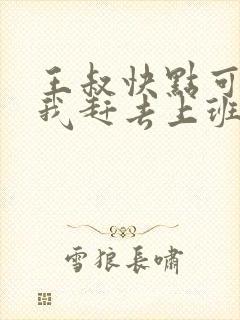 王叔快點可
我赶去上班
雪狼長嘯